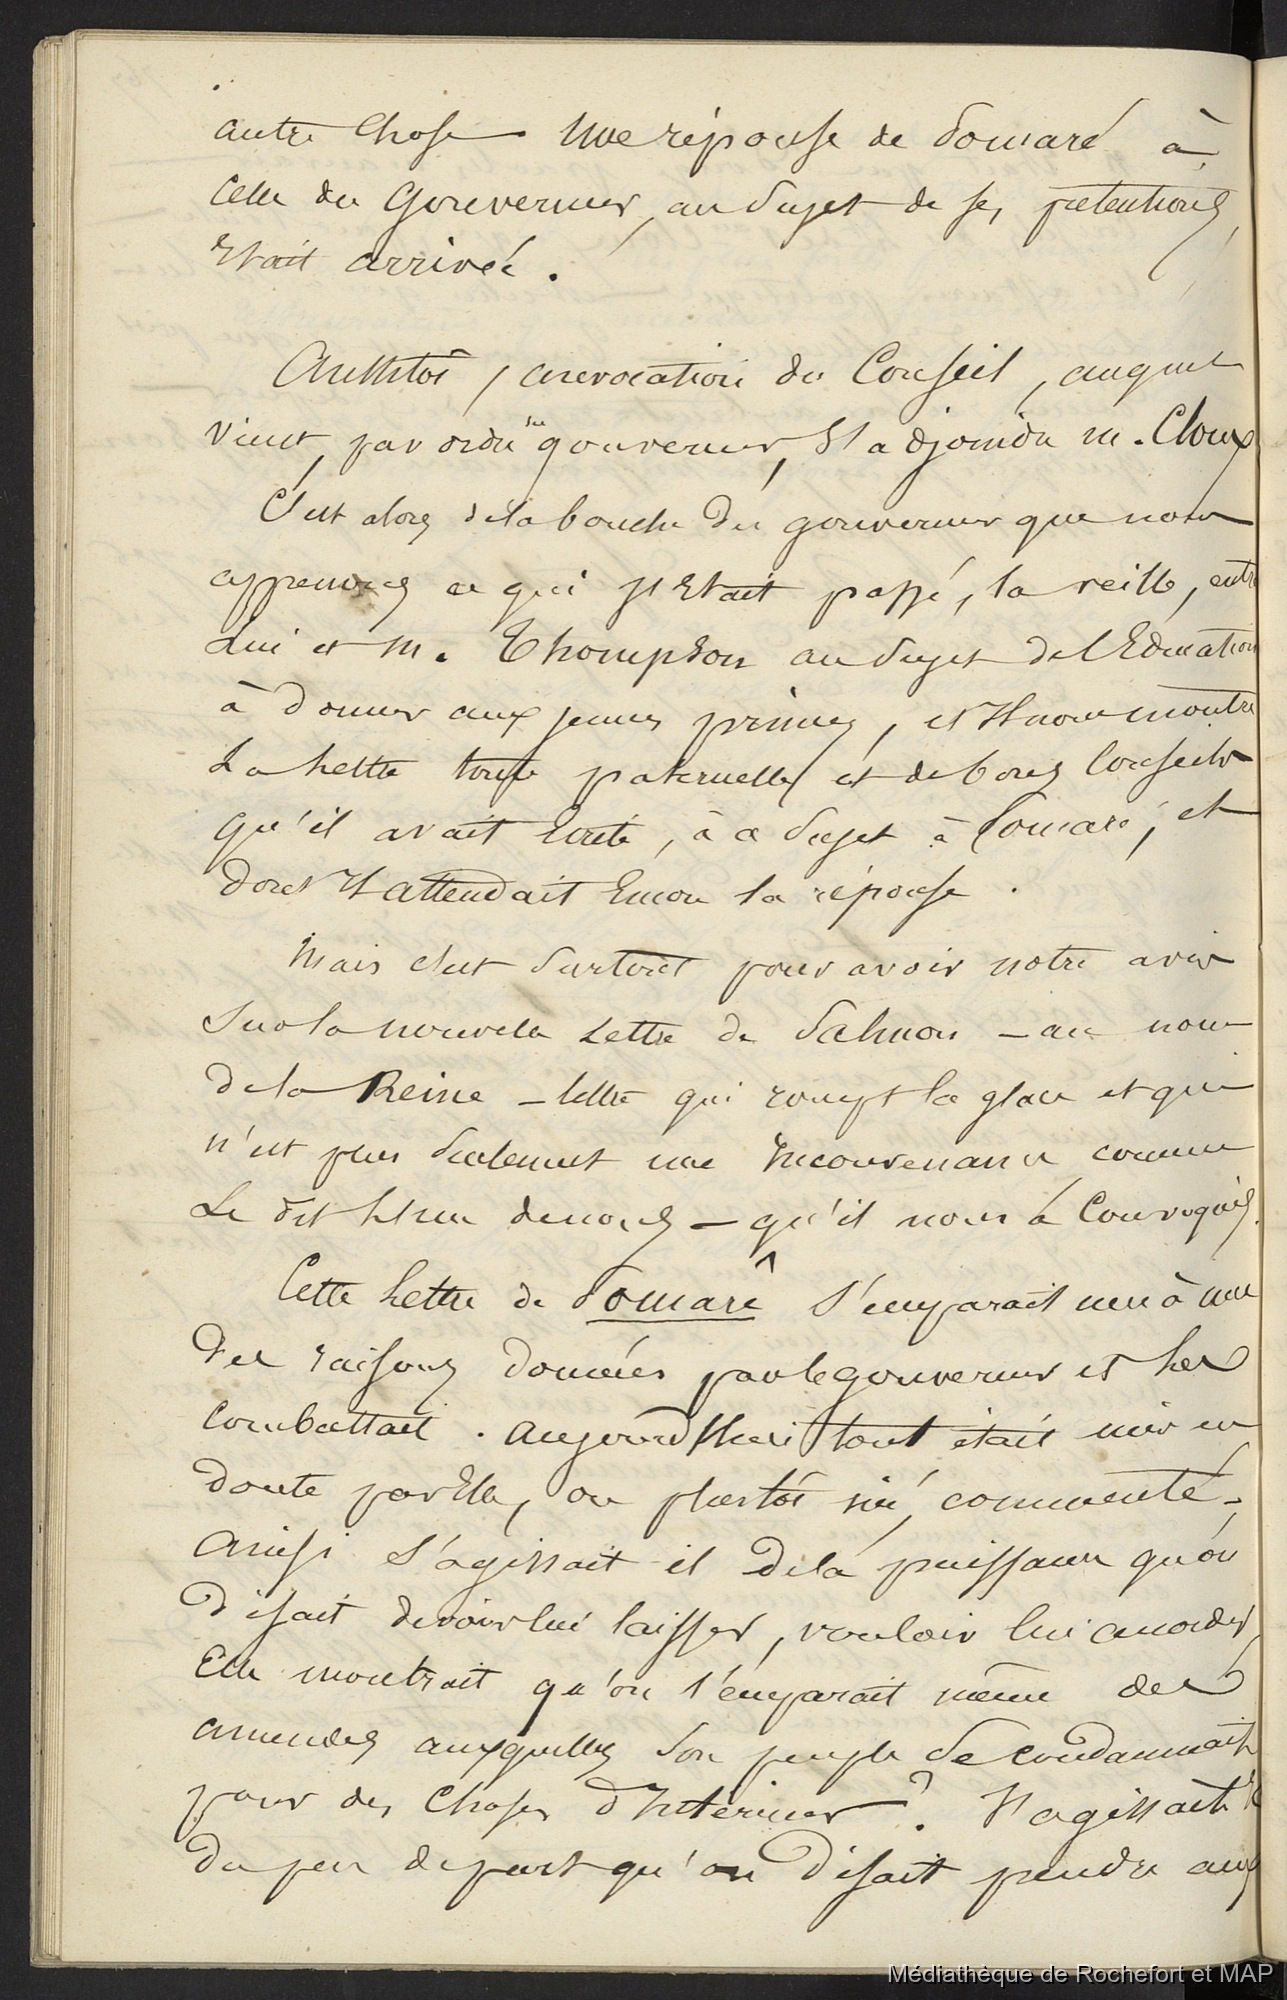 autre chose. Une réponse de Pomaré à
celle du Gouverneur, au sujet de ses prétentions,
était arrivée.
Aussitôt, convocation du Conseil, auquel
vient, par ordre du gouverneur, s'adjoindre M. Cloux
C'est alors de la bouche du gouverneur que nous
apprenons ce qui s'était passé, la veille, entre
lui et M. Thompson au sujet de l'Education
à donner aux jeunes princes, et Il nous montre
La Lettre toute paternelle et de bons Conseils
qu'il avait Ecrite, à ce sujet à Pomaré, et
dont Il attendait Encore la réponse.
Mais c'est surtout pour avoir notre avis
sur la nouvelle Lettre de Salmon - au nom
de la Reine - lettre qui rompt la glace et qui
n'est plus seulement une Inconvenance comme
Le dit Lieu denous - qu'il nous a Convoqués.
Cette Lettre de Pomaré s'emparait une à une
des raisons données par le gouverneur et les
Combattait. Aujourd'hui tout était mis en
doute par Elle, ou plustôt nié, commenté.
Ainsi s'agissait il de la puissance qu'on
disait devoir lui laisser, vouloir lui accorder,
Elle montrait qu'on s'emparait même des
amendes auxquelles son peuple se condamnait
pour des choses d'Interieur ? S'agissait il
du peu de part qu'on disait prendre aux
Médiathèque de Rochefort et MAP